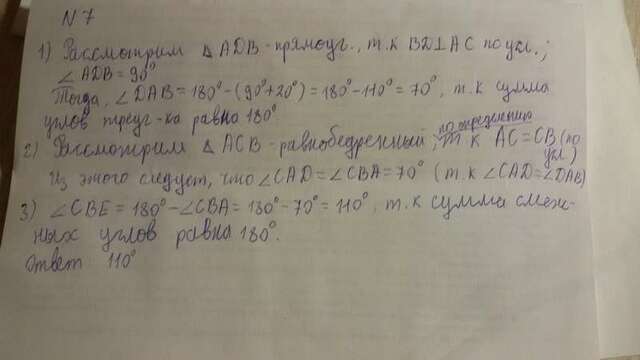 N 7
1) Рассмотрим △ ADB - прямоуг., т.к BD⊥AC по усл.;
∠ADB = 90°
Тогда, ∠DAB = 180° - (90°+20°) = 180° - 110° = 70°, т.к сумма
углов треуг-ка равна 180°
по определению
2) Рассмотрим △ ACB - равнобедренный, т.к AC = CB (по
усл)
Из этого следует, что ∠CAD = ∠CBA = 70° (т.к ∠CAD = ∠DAB)
3) ∠CBE = 180° - ∠CBA = 180° - 70° = 110°, т.к сумма смеж-
ных углов равна 180°.
Ответ 110°